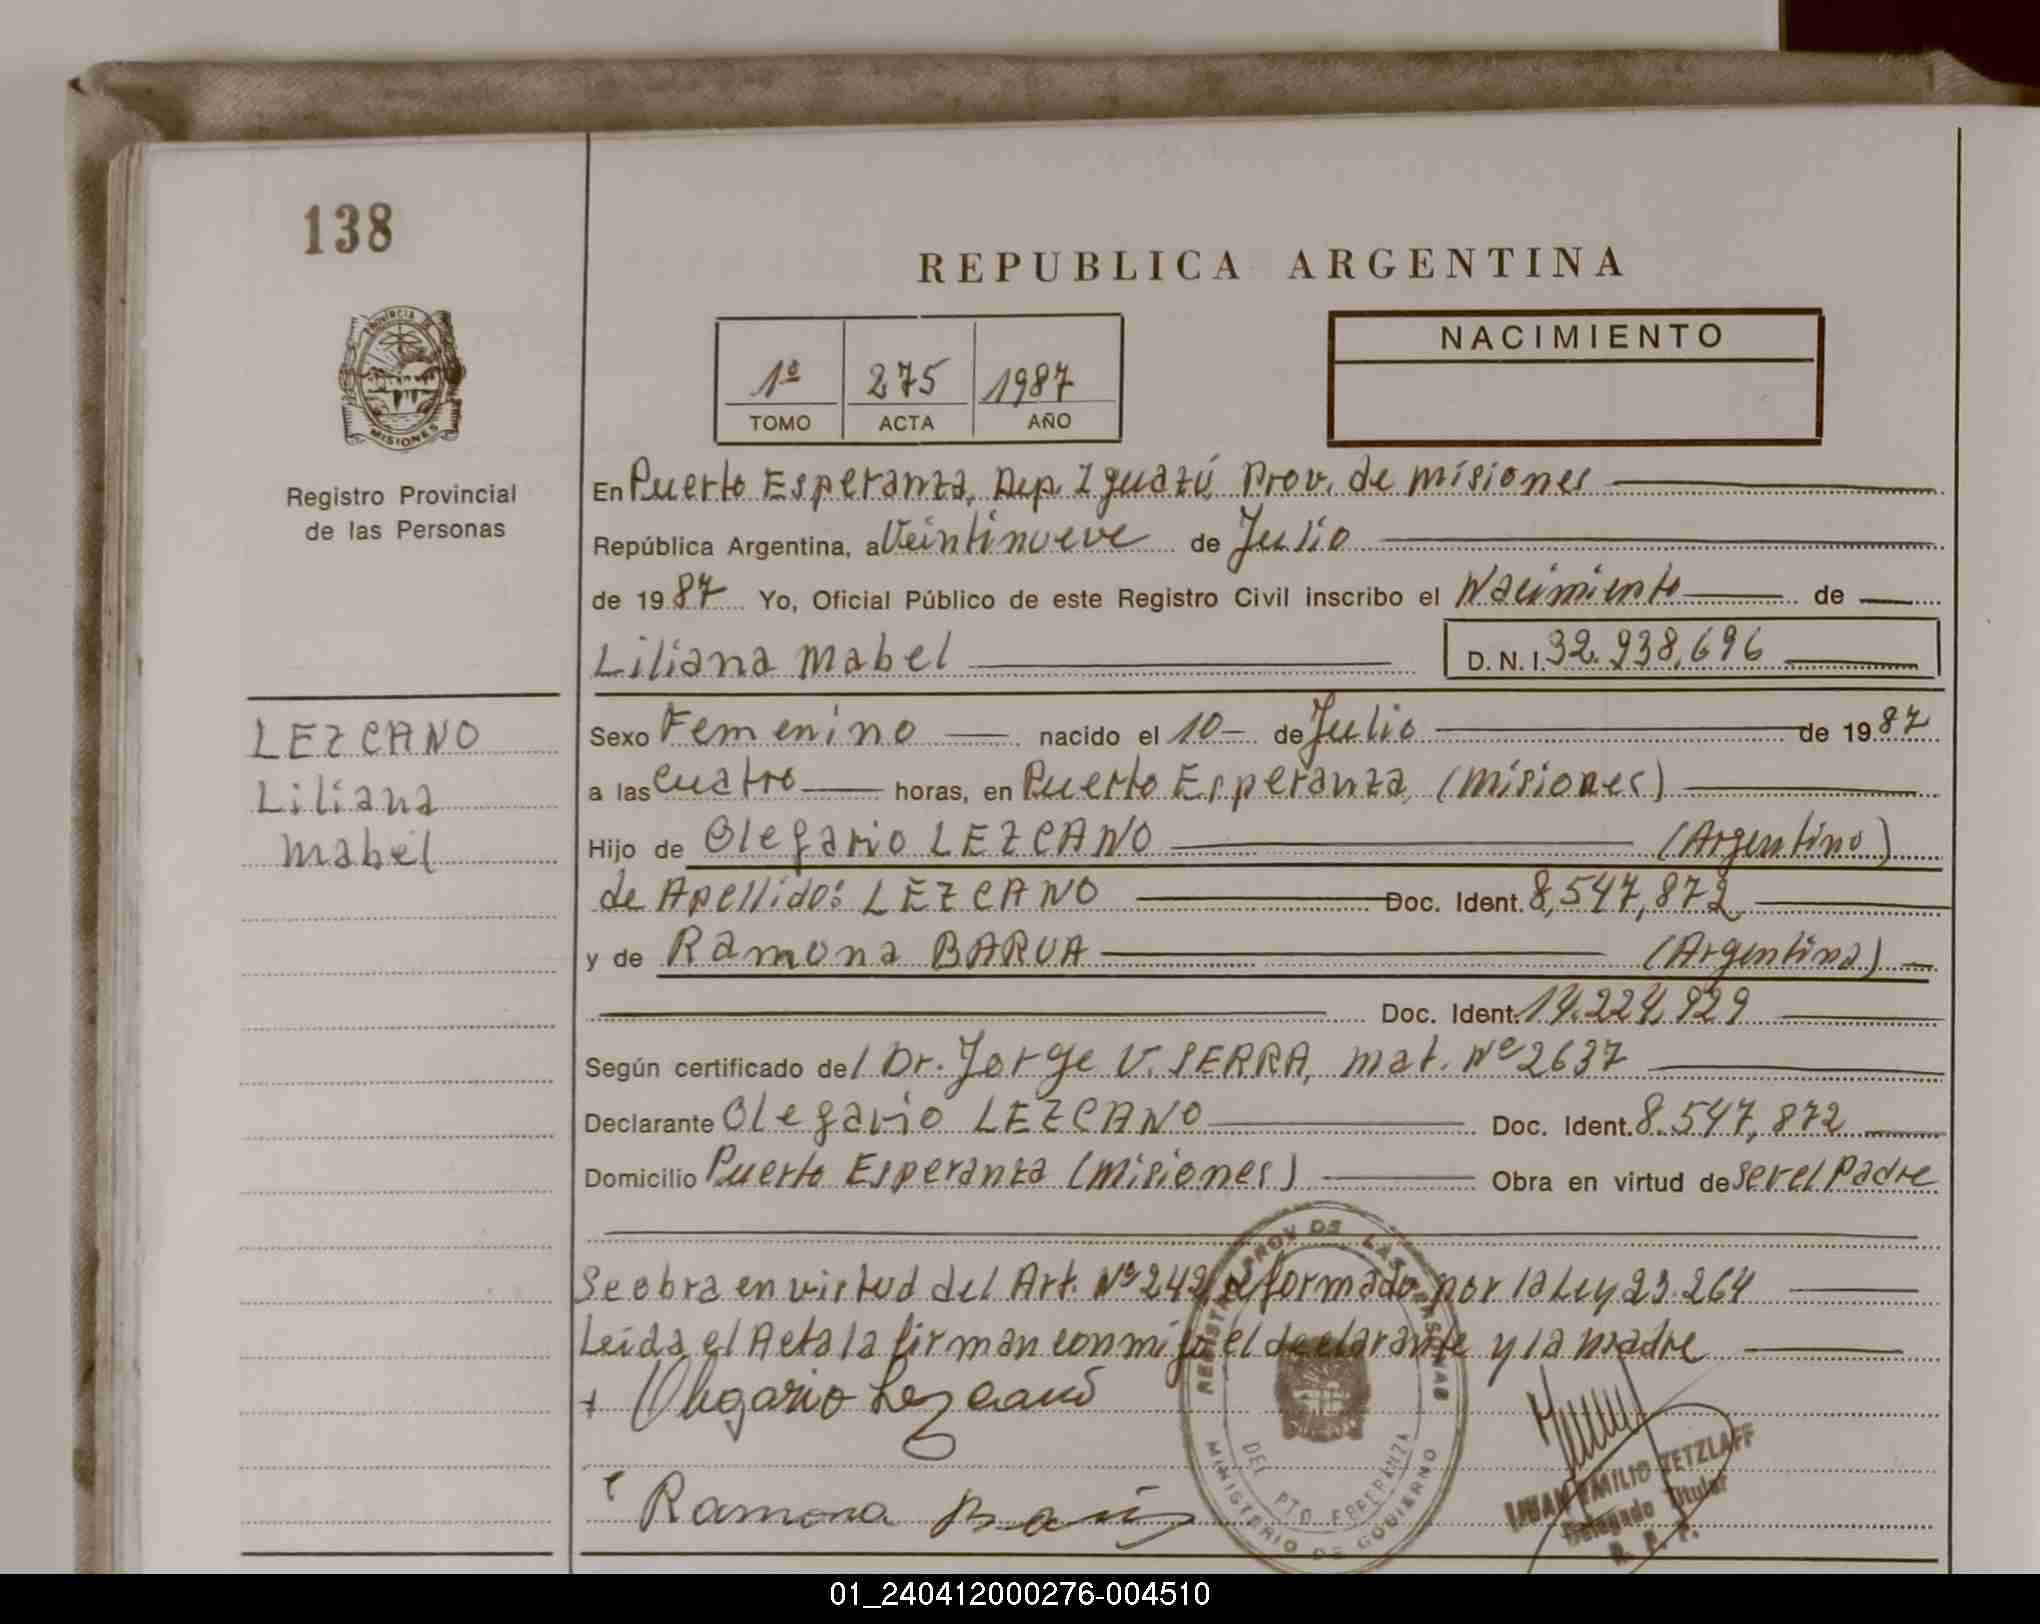 138
REPUBLICA ARGENTINA
PROVINCIA DE
MISIONES
Registro Provincial
de las Personas
1º 275 1987
TOMO ACTA AÑO
NACIMIENTO
En Puerto Esperanza, Dep. Iguazú Prov. de Misiones
República Argentina, a Veintinueve de Julio
de 1987 Yo, Oficial Público de este Registro Civil inscribo el Nacimiento de
Liliana Mabel D. N. I. 32.938.696
LEZCANO
Liliana
Mabel
Sexo Femenino nacido el 10 de Julio de 1987
a las cuatro horas, en Puerto Esperanza, (Misiones)
Hijo de Olegario LEZCANO (Argentino)
de Apellido: LEZCANO Doc. Ident. 8,547,872
y de Ramona BARUA (Argentina)
Doc. Ident. 14.224.929
Según certificado del Dr. Jorge V. SERRA, mat. Nº 2637
Declarante Olegario LEZCANO Doc. Ident. 8.547,872
Domicilio Puerto Esperanza (Misiones) Obra en virtud de ser el Padre
Se obra en virtud del Art. Nº 242 reformado por la Ley 23.264
Leida el Acta la firman conmigo el declarante y la madre
Olegario Lezcano
Ramona Barúa
REGISTRO PROV DE LAS PERSONAS
DEL PTO ESPERANZA
MINISTERIO DE GOBIERNO
JUAN EMILIO TETZLAFF
Delegado Titular
R. P. P.
01_240412000276-004510